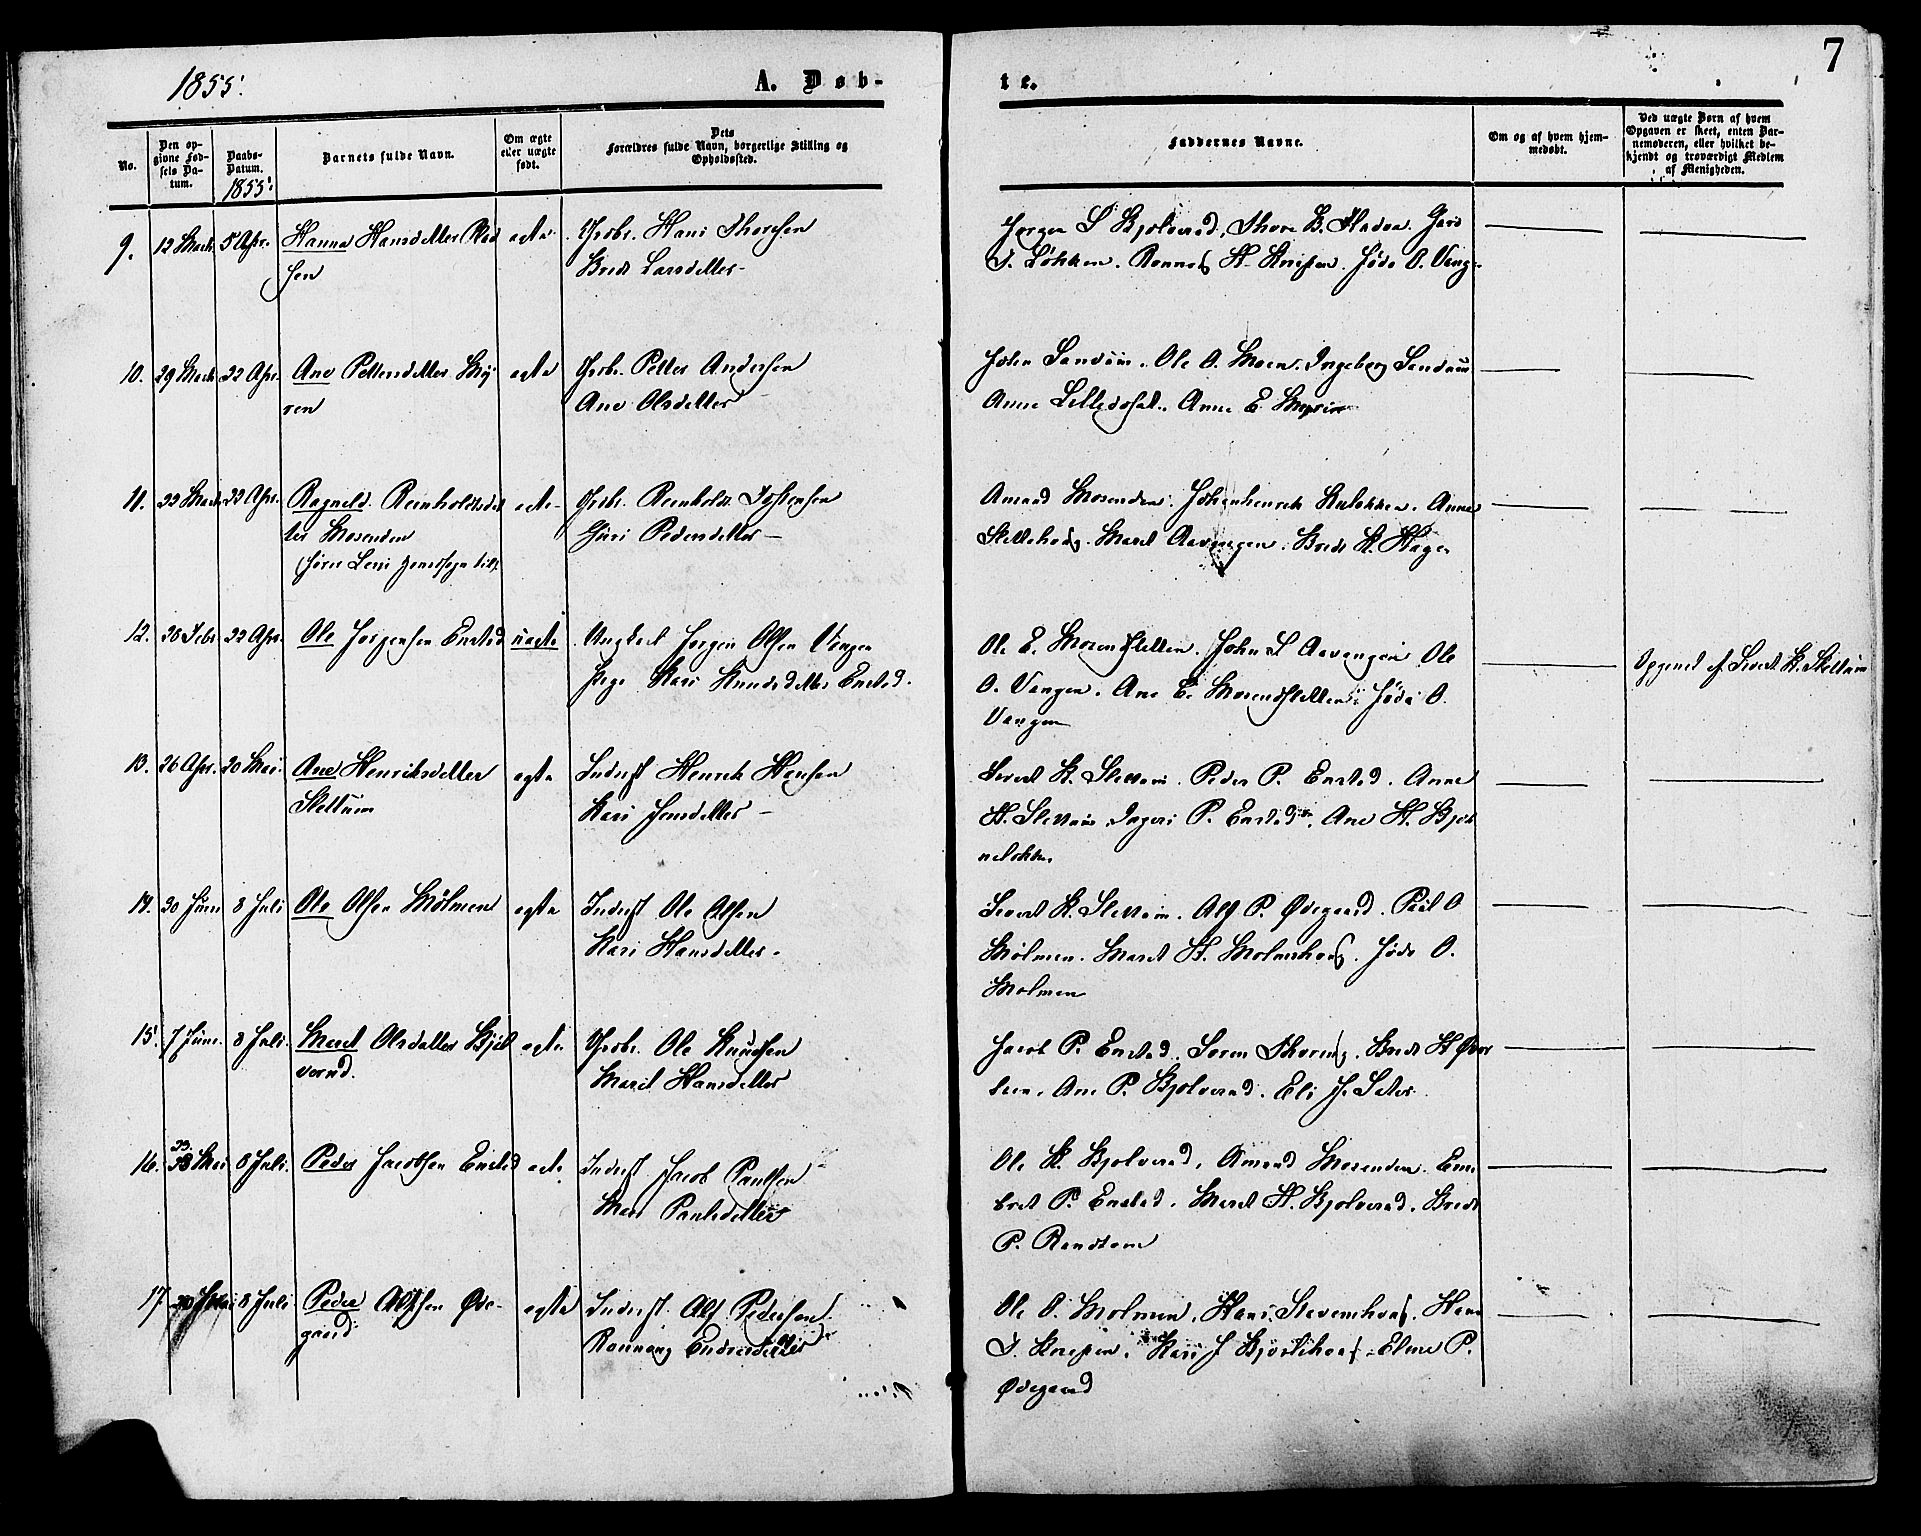 1855.
A. Døb-
te.
7
No.
Den op-
givne Fød-
sels Da-
tum.
Daabs-
Datum.
1855.
Barnets fulde Navn.
Om ægte
eller uægte
født.
Dets
Forældres fulde Navn, borgerlige Stilling og
Opholdssted.
Faddernes Navne.
Om og af hvem hjem-
medøbt.
Ved uægte Børn af hvem
Opgaven er skeet, enten Bar-
nemoderen, eller hvilket be-
kjendt og troværdigt Medlem
af Menigheden.
9. 12 Mart. 5 Apr. Hanna Hansdatter
sen
ægte
Hans Thoresen
Brit Larsdatter
Jørgen S Kjølverad. Thore
Løkken. H. Jøda O. Veng
10. 29 Mart. 22 Apr. Ane Pettersdatter My
ren
ægte
Petter Andersen
Ane Olsdatter
John Sandum. Ole O. Moen. Ingeborg Sandum
Anne Anne E. Myrin
11. 22 Mart. 22 Apr. Ragnild Reinholdtsdat
ter Mosenden
ægte
Reinholdt Tostensen
Guri Pedersdatter
Amund Mosenden. Johanhenrik Anne
Marit Aavangen. Brit H. Hage
12. 28 Febr. 22 Apr. Ole Jørgensen Enstad uægte
Ungkarl Jørgen Olsen Vangen
Pige Kari Knudsdatter Enstad.
Ole E. Mosendsletten. John S Aavangen Ole
O. Vangen. Ane E. Mosendsletten. Jøda O.
Vangen
Opgivet af Sivert K. Slettum
13. 26 Apr. 20 Mai. Ane Henriksdatter
Slettum
ægte
Inderst Henrik Hansen
Kari Jensdatter
Sivert K. Slettum. Peder P. Enstad. Anne
H. Slettum. Ingeri P. Enstad. Ane H. Bjør
neløkken
14. 20 Juni 8 Juli Ole Olsen Mølmen ægte
Inderst Ole Olsen
Kari Hansdatter.
Sivert K. Slettum. Alf P. Ødegaard. Paul O
Mølmen. Marit H. Molmshaug. Jøda O.
Molmen
15. 7 Juni. 8 Juli. Marit Olsdatter Kjøl
verad.
ægte
Ole Knudsen
Marit Hansdatter
Jacob P. Enstad. Soren Brit H
Ane P. Kjolverad. Eli J. Sater.
16. 23 Mai 8 Juli. Peder Jacobsen Enstad ægte
Inderst Jacob Paulsen
Mari Paulsdatter
Ole K. Kjolverad. Amund Mosenden. Em
bret P. Enstad. Marit H. Kjolverad. Brit
P. Randtom
17. 8 Juli Peder Alfsen Øde-
gaard
ægte
Inderst Alf Pedersen
Rønnaug Endresdatter
Ole O. Molmen. Hans Stavemshaug. Hans
Kari J Kjørlihaug. Elene P.
Ødegaard